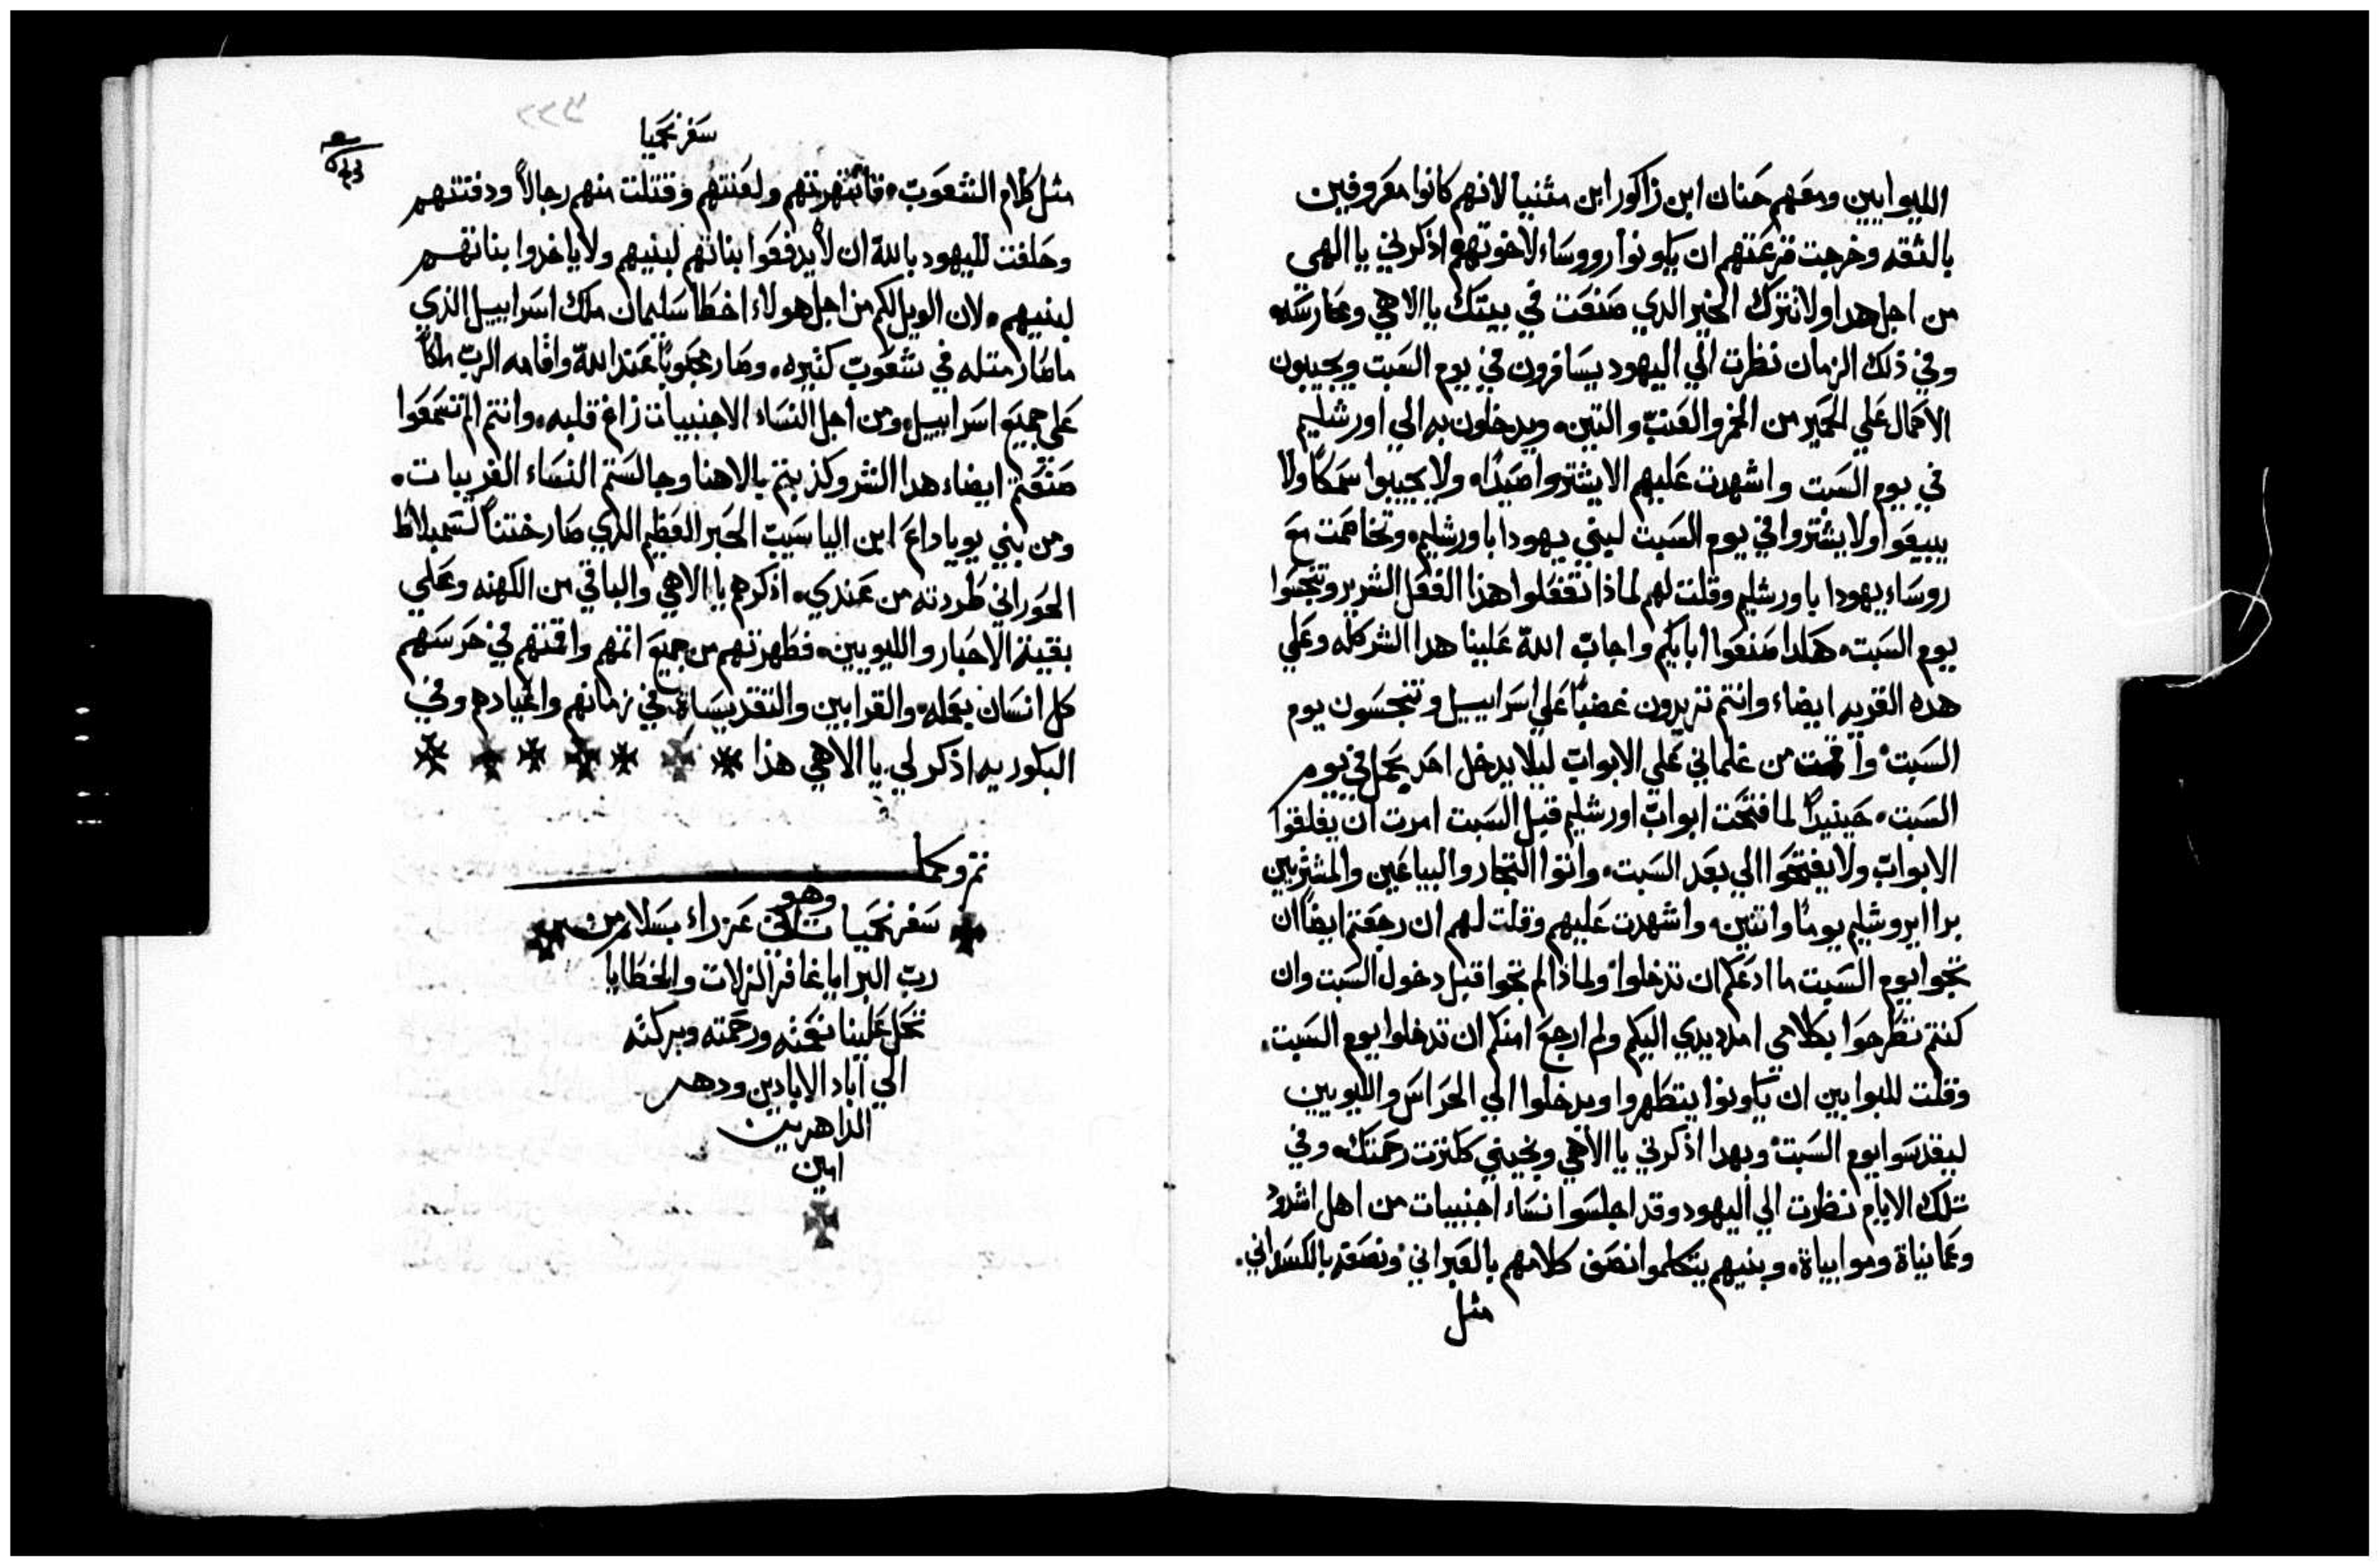 الليوايين ومعهم حنان ابن زاكور ابن متنيا لانهم كانوا معروفين
بالثقه وخرجت قرعتهم ان يكونوا رووساء لاخوتهم اذكرني يا الهي
من اجل هدا ولا تترك الخير الدي صنعت في بيتك يا الاهي وحارسته
وفي ذلك الزمان نظرت الي اليهود يسافرون في يوم السبت ويجيبون
الاحمال علي الحمير من الخمر والعنب والتين، ويدخلون به الي اورشليم
في يوم السبت واشهدت عليهم الا يشتروا صيداً، ولا يجيبوا سمكاً ولا
يبيعوا ولا يشتروا في يوم السبت لبني يهودا باورشليم، وتخاصمت مع
روساء يهودا باورشليم وقلت لهم لماذا تفعلوا هذا الفعل الشرير وتنجسوا
يوم السبت، هكدا صنعوا ابايكم واجاب الله علينا هدا الشر كله وعلي
هده القريه ايضاء وانتم تزيدون غضباً علي اسراييل وتنجسون يوم
السبت، واقمت من غلماني علي الابواب ليلا يدخل احد يحمل في يوم
السبت، حينيداً لما فتحت ابواب اورشليم قبل السبت امرت ان يغلقوا
الابواب ولا يفتحوا الي بعد السبت، واتوا التجار والبياعين والمشتريين
برا ايروشليم يوماً واتنين، واشهدت عليهم وقلت لهم ان رجعتم ايضاً ان
تجوا يوم السبت ما ادعكم ان تدخلوا ولماذا لم تجوا قبل دخول السبت وان
كنتم تطرحوا بكلامي امدد يدي اليكم ولم ارجع امنكم ان تدخلوا يوم السبت،
وقلت للبوابين ان يكونوا يتطهروا ويدخلوا الي الحراس والليويين
ليقدسوا يوم السبت، وبهدا اذكرني يا الاهي ونجيني ككترت رحمتك، وفي
تلك الايام نظرت الي اليهود وقد اجلسوا نساء اجنبيات من اهل اشدود
وعمانياة وموابياة، وبنيهم يتكلموا نصف كلامهم بالعبراني ونصفه بالكسداني،
مثل
سفر نحميا
مثل كلام الشعوب، فانتهرتهم ولعنتهم وقتلت منهم رجالاً ودفنتهم
وحلفت لليهود بالله ان لا يدفعوا بناتهم لبنيهم ولا ياخدوا بناتهم
لبنيهم، لان الويل لكم من اجل هولاء اخطا سليمان ملك اسراييل الذي
ما صار متله في شعوب كثيره، وصار محبوباً عند الله واقامه الرب ملكاً
علي جميع اسراييل، ومن اجل النساء الاجنبيات زاغ قلبه، وانتم الم تسمعوا
صنعتم ايضاء هدا الشر وكذبتم بالاهنا وجالستم النساء الغريبات،
ومن بني يوياداع ابن الياسيب الحبر العظيم الدي صار ختناً لسمبلاط
الحوراني طردته من عندي، اذكرهم يا الاهي والباقي من الكهنه وعلي
بقية الاحبار والليويين، فطهرتهم من جميع اتمهم واقمتهم في حرسهم
كل انسان بعمله، والقرابين والتقديساة في زمانهم واعيادهم وفي
البكوريه اذكر لي يا الاهي هذا
تم وكمل
سفر نحميا وهو تاني عزراء بسلام من
رب البرايا غافر الزلات والخطايا
تحل علينا نعمته ورحمته وبركته
الي اباد الابادين ودهر
الداهرين
امين